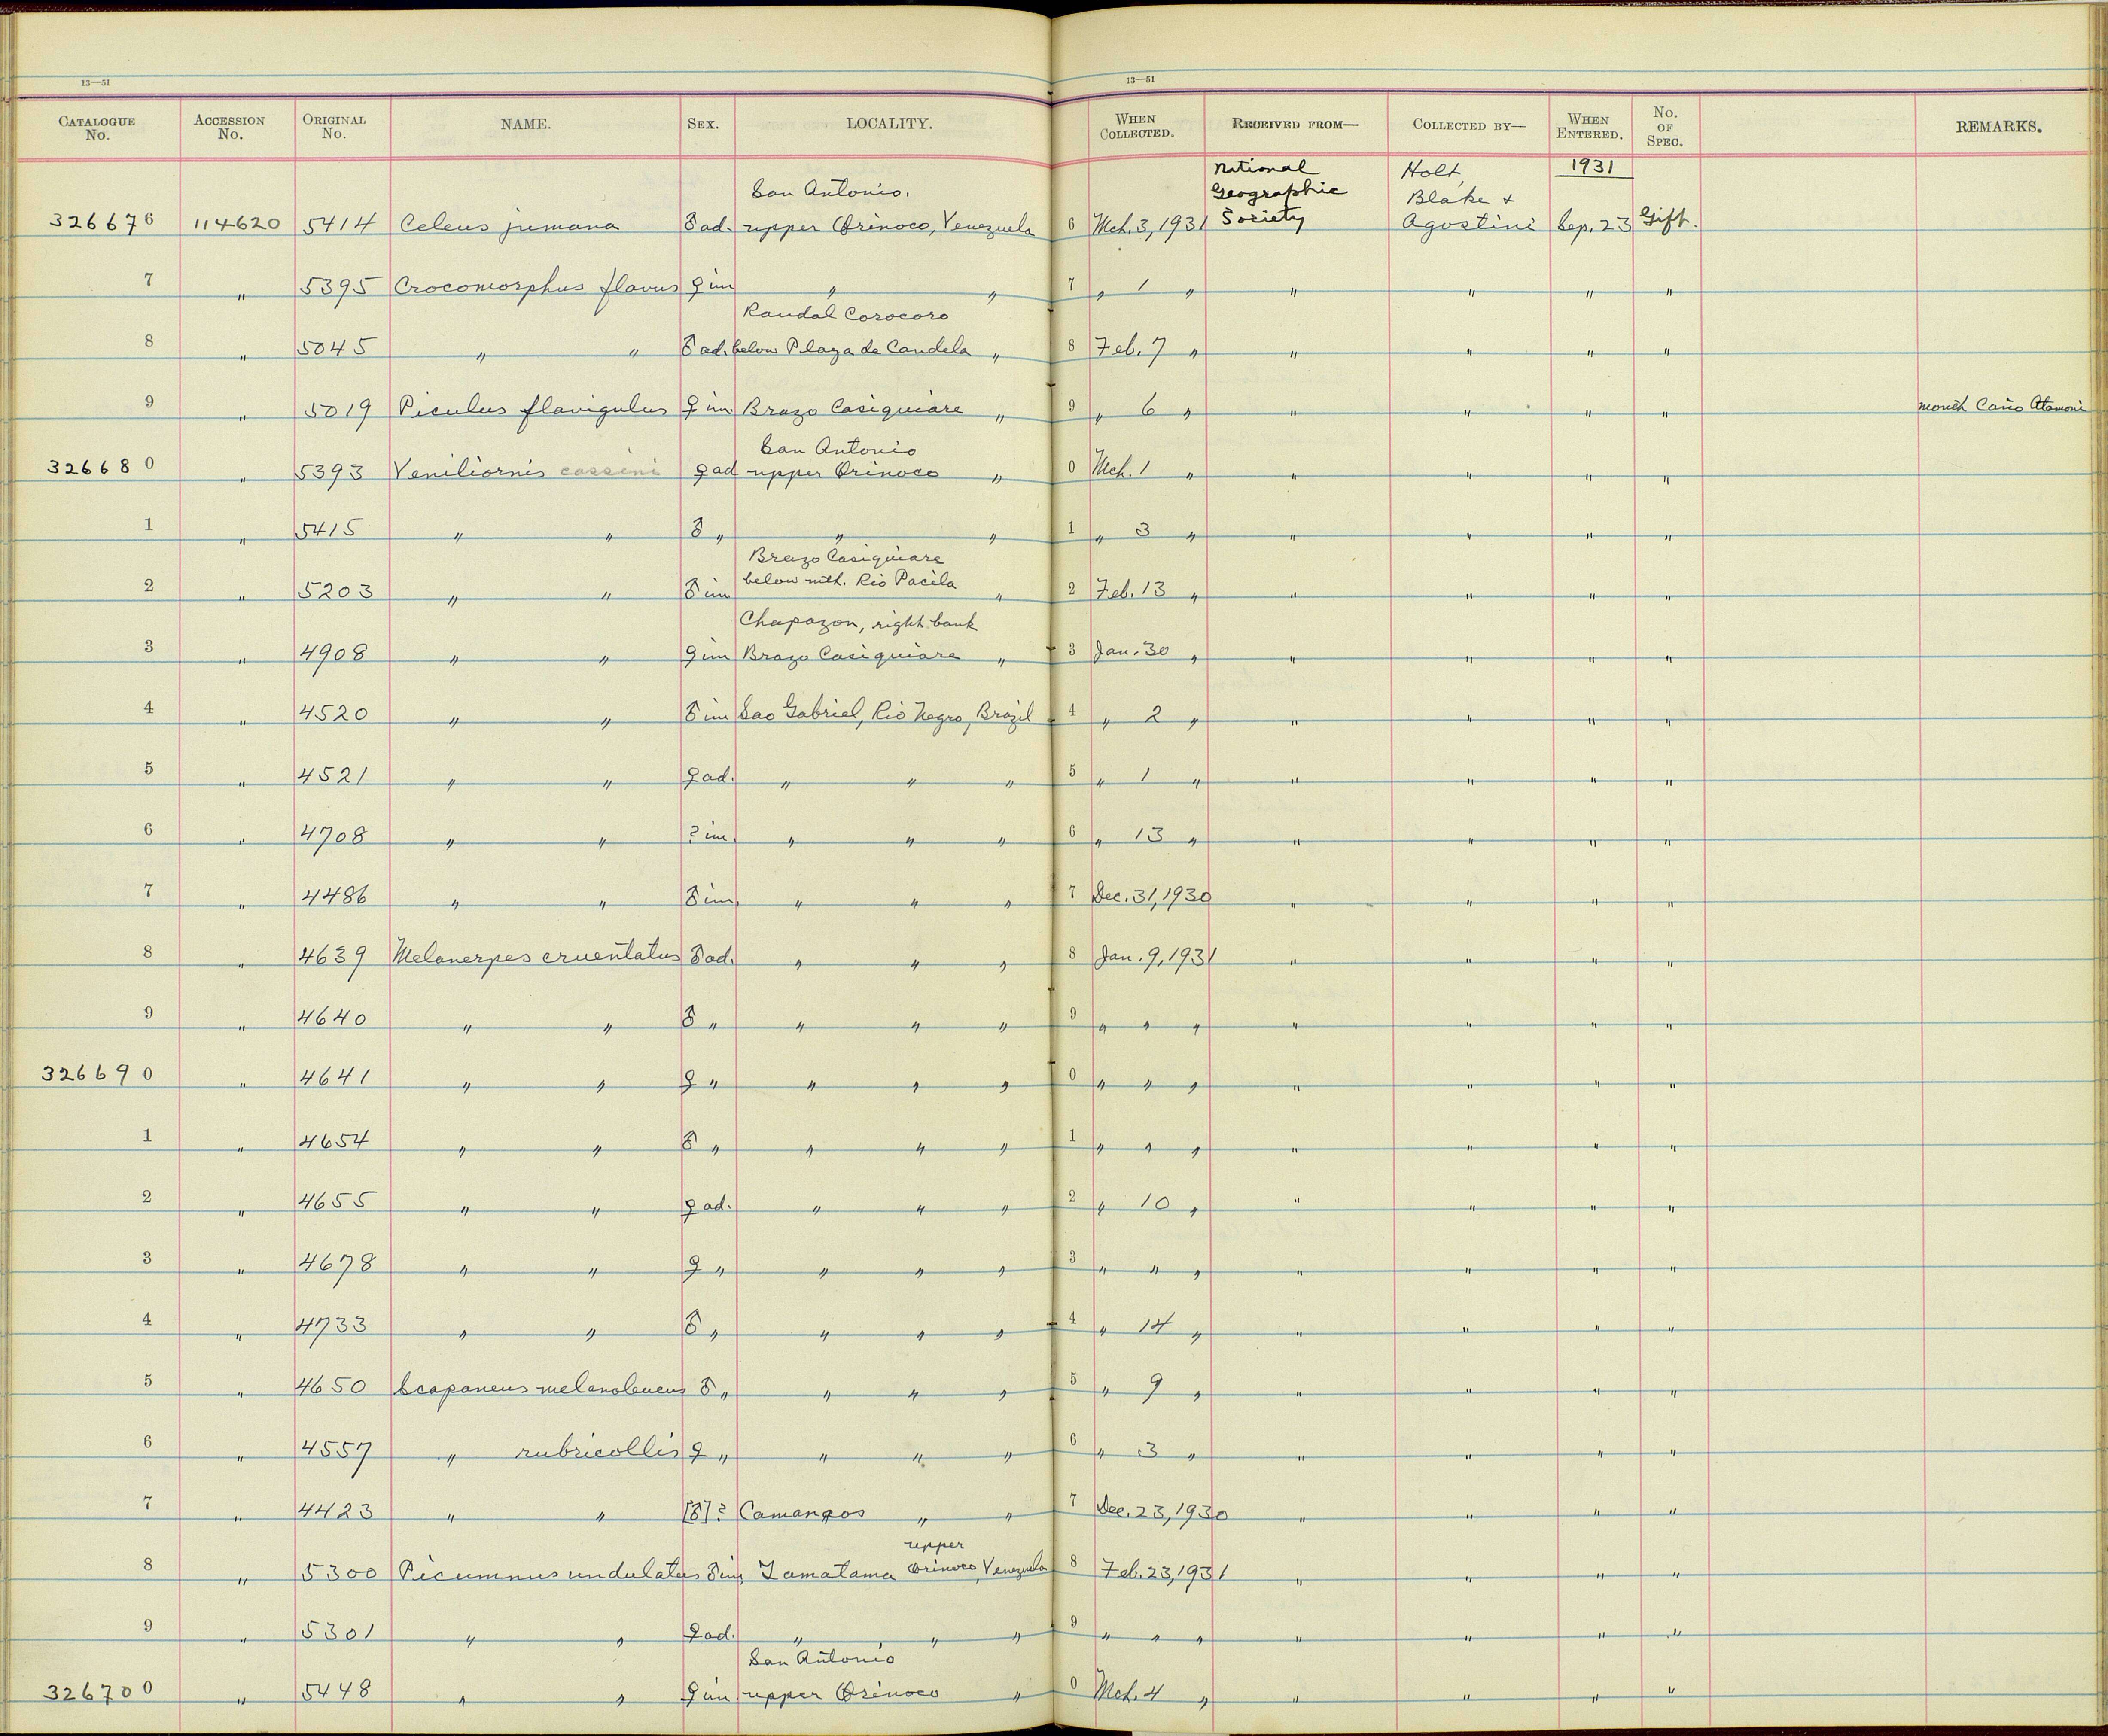 13—51 13—51
CATALOGUE No. ACCESSION No. ORIGINAL No. NAME. SEX. LOCALITY. WHEN COLLECTED. RECEIVED FROM— COLLECTED BY— WHEN ENTERED. No. OF SPEC. REMARKS.
San Antonio, National Geographic Holt, Blake & 1931
326676 114620 5414 Celeus jumana ♂ ad. upper Orinoco, Venezuela 6 Mch. 3, 1931 Society Agostini Sep. 23 Gift.
7 " 5395 Crocomorphus flavus ♀ im " " 7 " 1 " " " " "
Raudal Corocoro
8 " 5045 " " ♂ ad. below Playa de Candela " 8 Feb. 7 " " " " "
9 " 5019 Piculus flavigulus ♀ im Brazo Casiquiare " 9 " 6 " " " " " mouth Caño Atamoni
San Antonio
326680 " 5393 Veniliornis cassini ♀ ad upper Orinoco " 0 Mch. 1 " " " " "
1 " 5415 " " ♂ " " " 1 " 3 " " " " "
Brazo Casiquiare
2 " 5203 " " ♂ im below mth. Rio Pacila " 2 Feb. 13 " " " " "
Chapazon, right bank
3 " 4908 " " ♀ im Brazo Casiquiare " 3 Jan. 30 " " " " "
4 " 4520 " " ♂ im Sao Gabriel, Rio Negro, Brazil 4 " 2 " " " " "
5 " 4521 " " ♀ ad. " " " 5 " 1 " " " " "
6 " 4708 " " ? im. " " " 6 " 13 " " " " "
7 " 4486 " " ♂ im. " " " 7 Dec. 31, 1930 " " " "
8 " 4639 Melanerpes cruentatus ♂ ad. " " " 8 Jan. 9, 1931 " " " "
9 " 4640 " " ♂ " " " " 9 " " " " " " "
326690 " 4641 " " ♀ " " " " 0 " " " " " " "
1 " 4654 " " ♂ " " " " 1 " " " " " " "
2 " 4655 " " ♀ ad. " " " 2 " 10 " " " " "
3 " 4678 " " ♀ " " " " 3 " " " " " " "
4 " 4733 " " ♂ " " " " 4 " 14 " " " " "
5 " 4650 Scapaneus melanoleucus ♂ " " " " 5 " 9 " " " " "
6 " 4557 " rubricollis ♀ " " " " 6 " 3 " " " " "
7 " 4423 " " [♂]? Camanaos " " 7 Dec. 23, 1930 " " " "
upper
8 " 5300 Picumnus undulatus ♂ im. Tamatama Orinoco, Venezuela 8 Feb. 23, 1931 " " " "
9 " 5301 " " ♀ ad. " " " 9 " " " " " " "
San Antonio
326700 " 5448 " " ♀ im. upper Orinoco " 0 Mch. 4 " " " " "